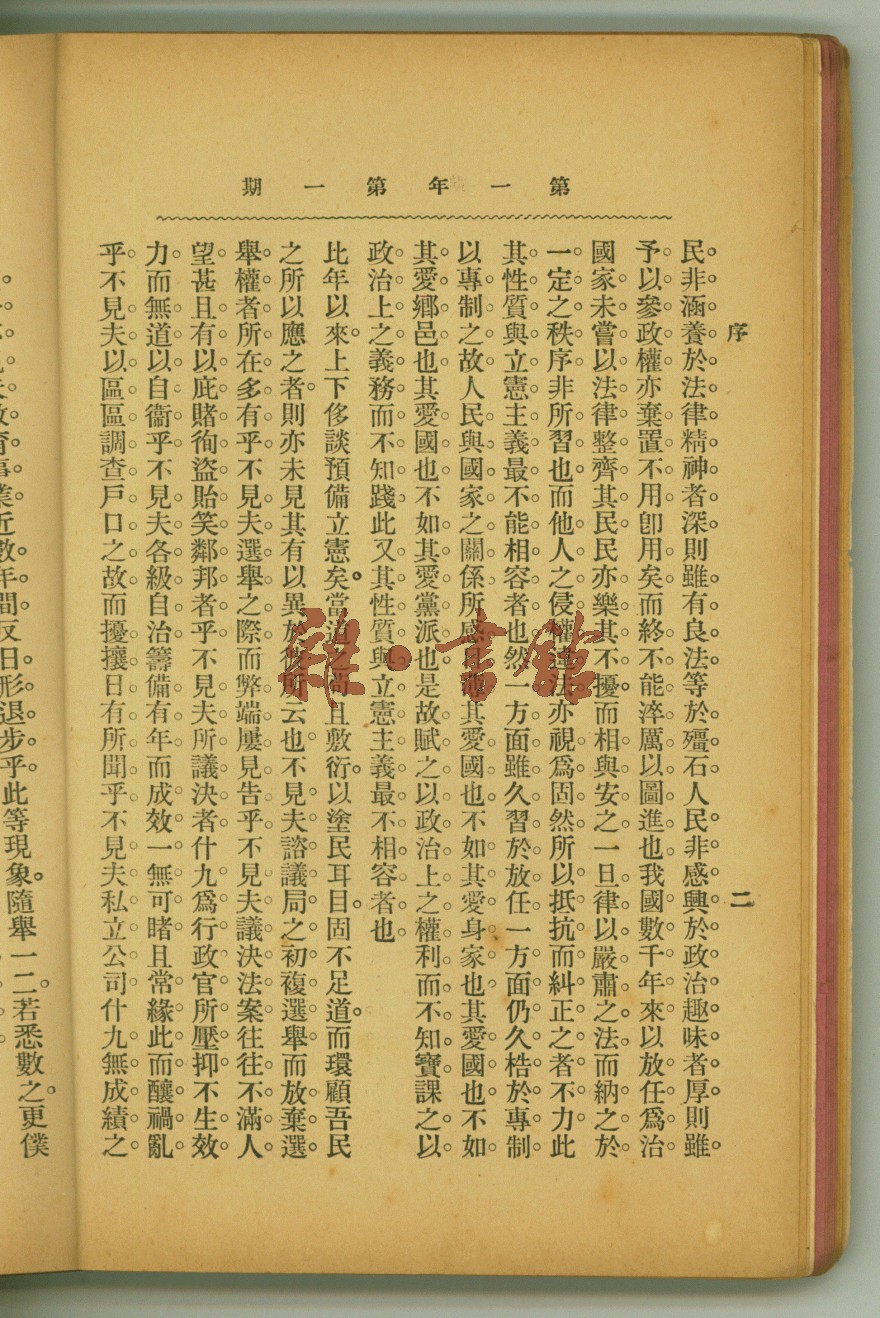 第一年第一期
序
二
民非涵養於法律精神者深則雖有良法等於殭石人民非感興於政治趣味者厚則雖
予以參政權亦棄置不用卽用矣而終不能淬厲以圖進也我國數千年來以放任爲治
國家未嘗以法律整齊其民民亦樂其不擾而相與安之一旦律以嚴肅之法而納之於
一定之秩序非所習也而他人之侵權違法亦視爲固然所以抵抗而糾正之者不力此
其性質與立憲主義最不能相容者也然一方面雖久習於放任一方面仍久梏於專制
以專制之故人民與國家之關係所感甚薄其愛國也不如其愛身家也其愛國也不如
其愛鄉邑也其愛國也不如其愛黨派也是故賦之以政治上之權利而不知寶課之以
政治上之義務而不知踐此又其性質與立憲主義最不相容者也
比年以來。上下侈談預備立憲矣。當道之尚且敷衍。以塗民耳目。固不足道。而環顧吾民
之所以應之者。則亦未見其有以異於彼所云也。不見夫諮議局之初複選舉而放棄選
舉權者所在多有乎不見夫選舉之際而弊端屢見告乎不見夫議決法案往往不滿人
望甚且有以庇賭徇盜貽笑鄰邦者乎不見夫所議決者什九爲行政官所壓抑不生效
力而無道以自衞乎不見夫各級自治籌備有年而成效一無可睹且常緣此而釀禍亂
乎不見夫以區區調查戶口之故而擾攘日有所聞乎不見夫私立公司什九無成績之
教育事業近數年間反日形退步乎。此等現象。隨舉一二。若悉數之。更僕